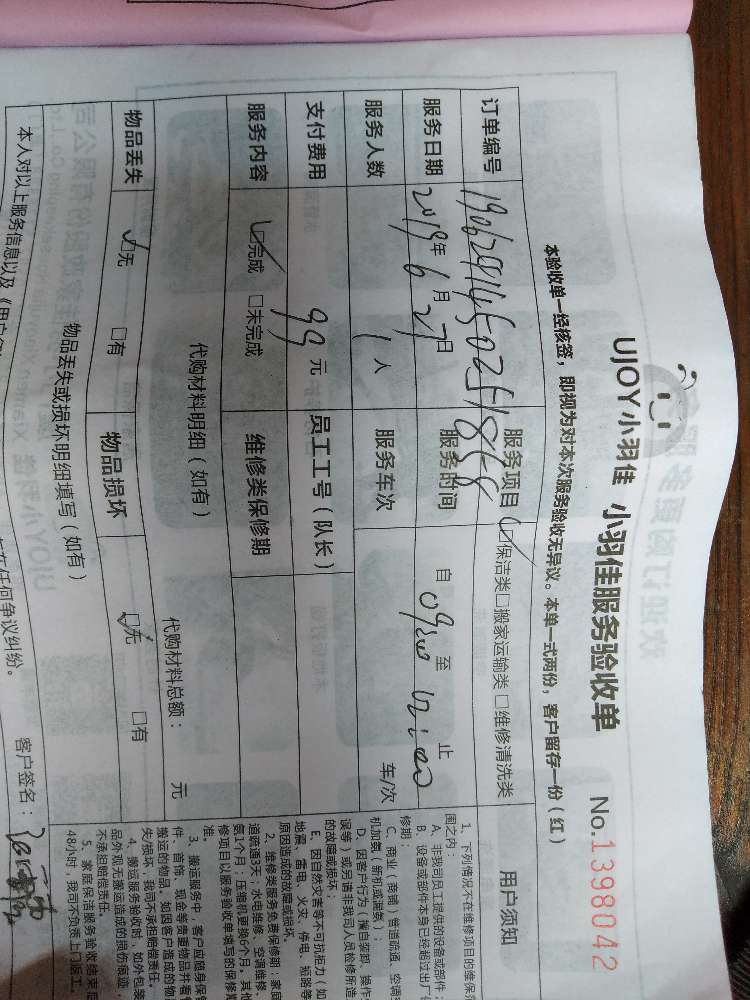 UJOY小羽佳 小羽佳服务验收单 No.1398042
本验收单一经核签，即视为对本次服务验收无异议。本单一式两份，客户留存一份（红）
订单编号 服务项目 保洁类 □搬家运输类 □维修清洗类
服务日期 2019年6月27日 服务时间 自 至 止
服务人数 1人 服务车次 车/次
支付费用 99元 员工工号（队长）
服务内容 完成 □未完成 维修类保修期
代购材料明细（如有） 代购材料总额： 元
物品丢失 无 □有 物品损坏 无 □有
物品丢失或损坏明细填写（如有）
本人对以上服务信息以及《用户
在任何争议纠纷。
客户签名：
用户须知
1、下列情况不在维修项目的维保范
围之内：
A、非我司员工提供的设备或部件；
B、设备或部件本身已经超过出厂
修期；
C、商业（商铺）管道疏通、空调
机加氨（新机或漏氨）；
D、因客户行为（擅自装卸、操作
误等）或另请非我司人员检修所造
的故障或损坏；
E、因自然灾害等不可抗拒力（如
地震、雷电、火灾、停电、短路等
原因造成的故障或损坏。
2、维修类服务免费保修期：家庭
道疏通3天；水电维修、空调维修、
氨1个月；压缩机更换6个月，其他
修项目以服务验收单填写的保修期
准。
3、搬运服务中，客户应随身保管
件、首饰、现金等贵重物品并看
搬运的物品，如因客户造成的物
失/损坏，我司不承担赔偿责任。
4、搬运服务验收时，如外包装
品外观无搬运造成的损伤痕迹，
不承担赔偿责任。
5、家庭保洁服务验收结束后
48小时，我司不负责上门返工。